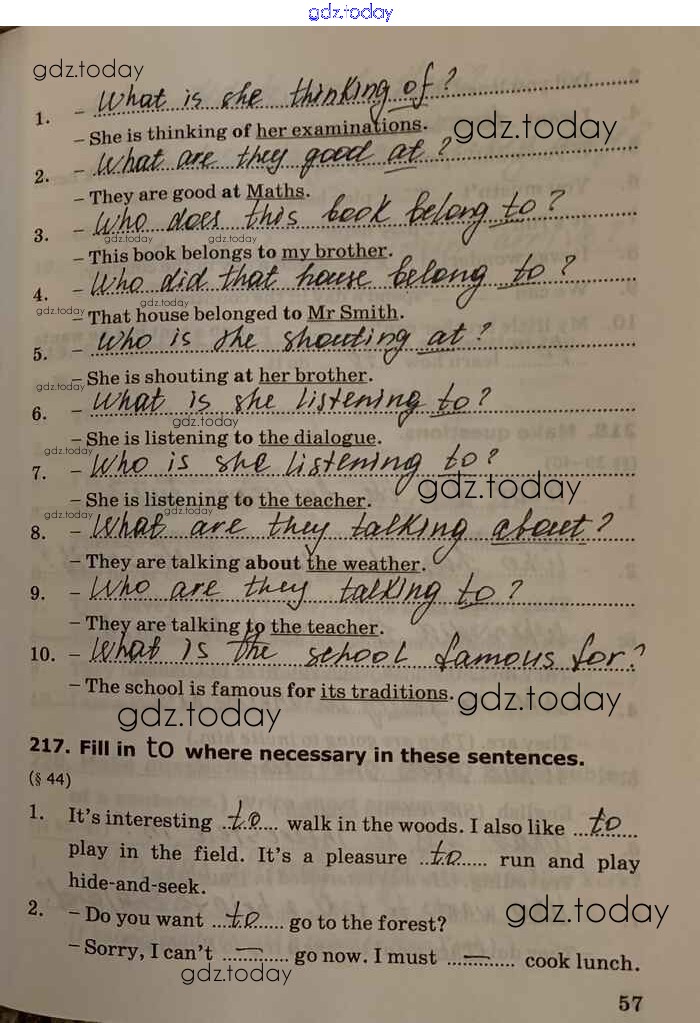 gdz.today
gdz.today
1. – What is she thinking of?
– She is thinking of her examinations. gdz.today
2. – What are they good at?
– They are good at Maths.
3. – Who does this book belong to?
gdz.today gdz.today
– This book belongs to my brother.
4. – Who did that house belong to?
gdz.today
gdz.today – That house belonged to Mr Smith.
5. – Who is she shouting at?
– She is shouting at her brother.
gdz.today
6. – What is she listening to?
gdz.today
– She is listening to the dialogue.
gdz.today
7. – Who is she listening to?
gdz.today
– She is listening to the teacher.
gdz.today gdz.today
8. – What are they talking about?
– They are talking about the weather.
9. – Who are they talking to?
– They are talking to the teacher.
10. – What is the school famous for?
– The school is famous for its traditions. gdz.today
gdz.today
217. Fill in to where necessary in these sentences.
(§ 44)
1. It's interesting ..to.... walk in the woods. I also like ...to.....
play in the field. It's a pleasure ..to..... run and play
hide-and-seek.
2. – Do you want ...to..... go to the forest?
gdz.today
– Sorry, I can't ...—... go now. I must ...—... cook lunch.
gdz.today
57